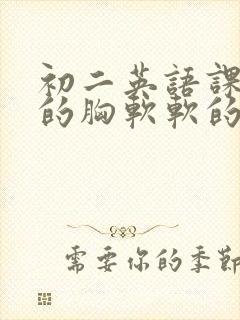 初二英語課
的胸軟軟的
需要你的季節